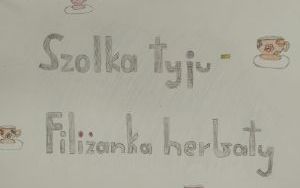 Szolka tyju -
Filiżanka herbaty